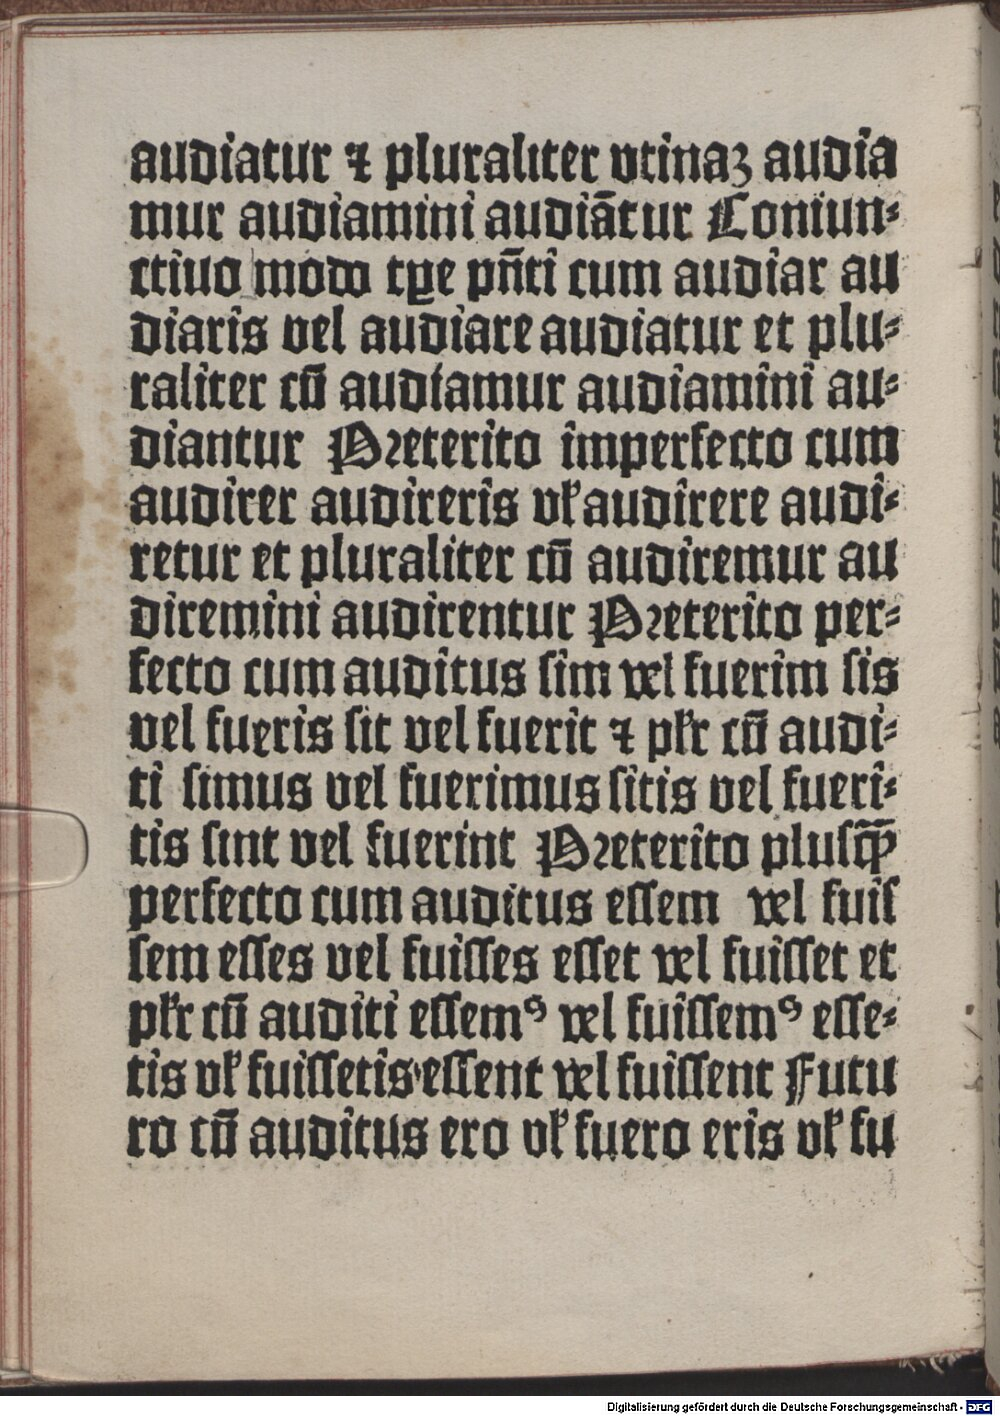 audiatur ⁊ pluraliter vtinaꝫ audia
mur audiamini audiātur Coniun⸗
ctiuo modo tꝑe pn̄ti cum audiar au
diaris vel audiare audiatur et plu⸗
raliter cū audiamur audiamini au⸗
diantur Preterito imperfecto cum
audirer audireris vꝉ audirere audi⸗
retur et pluraliter cū audiremur au
diremini audirentur Preterito per⸗
fecto cum auditus sim vel fuerim sis
vel fueris sit vel fuerit ⁊ pꝉr cū audi⸗
ti simus vel fuerimus sitis vel fueri⸗
tis sint vel fuerint Preterito plusꝙ̄
perfecto cum auditus essem vel fuis
sem esses vel fuisses esset vel fuisset et
pꝉr cū auditi essemꝰ vel fuissemꝰ esse⸗
tis vꝉ fuissetis essent vel fuissent Futu
ro cū auditus ero vꝉ fuero eris vꝉ fu
Digitalisierung gefördert durch die Deutsche Forschungsgemeinschaft - DFG